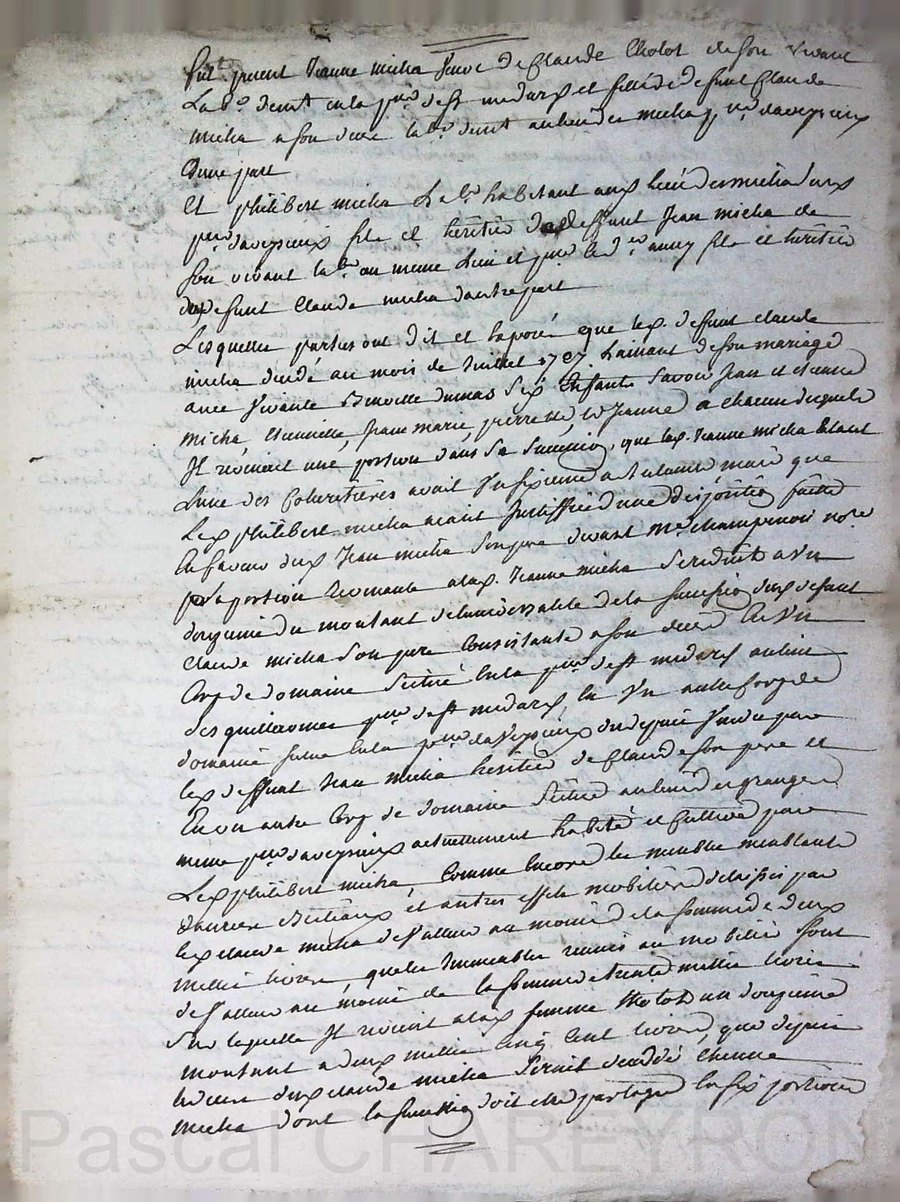 fut présent Jeanne micha veuve de Claude Cholot de son vivant
La.br demt en la psse de st medard et fille de defunt Claude
micha a son deces la.br demt au lieu des micha psse daveyzieux
dune part
Et philibert micha La.br habitant aux lieu des micha susd
psse daveyzieux fils et héritier de deffunt Jean micha de
son vivant la.br au meme Lieu et psse le dr aussy fils et héritier
dud defunt Claude micha dautre part
Lesquelles parties ont dit et Exposé que led. defunt claude
micha décédé au mois de Juillet 1767 Laissant de son mariage
avec vivante Benoitte dumas six Enfants savoir Jean et étienne
micha, Jeanne marie, pierrette, et Jeanne a chacun desquels
Il revenait une portion dans sa succession, que lad. Jeanne micha étant
Lune des cohéritières avait un sixieme a reclamer mais que
Led philibert micha ayant justiffié dune disposition faitte
En faveur dud Jean micha son pere devant me champenoi nore
la portion revenante a lad. Jeanne micha se reduit a un
douzieme du montant de luniversalité de la succession dud defunt
Claude micha son pere Consistante a son deces En un
Corps de domaine situé En la psse de st medard au lieu
des guillermes psse de st medard, En un autre Corps de
domaine situé En la psse daveyzieux du depuis vendu par
led deffunt Jean micha héritier de Claude son pere et
En un autre Corps de domaine situé au lieu des granges
meme psse daveyzieux actuellement habité et cultivé par
Led philibert micha, Comme Encore les meubles meublants
danrées Bestiaux et autres effets mobiliers délaissés par
led claude micha de valleur au moins de la somme de deux
mille livres, quels Immeubles reunis au mobilier sont
de valleur au moins de la somme de trente mille livres
Sur laquelle Il revient a lad femme Cholot un douzieme
montant a deux mille cinq cent livres, que depuis
le deces dud claude micha serait decedé étienne
micha dont la succession doit etre partagée En six portions
Pascal CHAREYRON